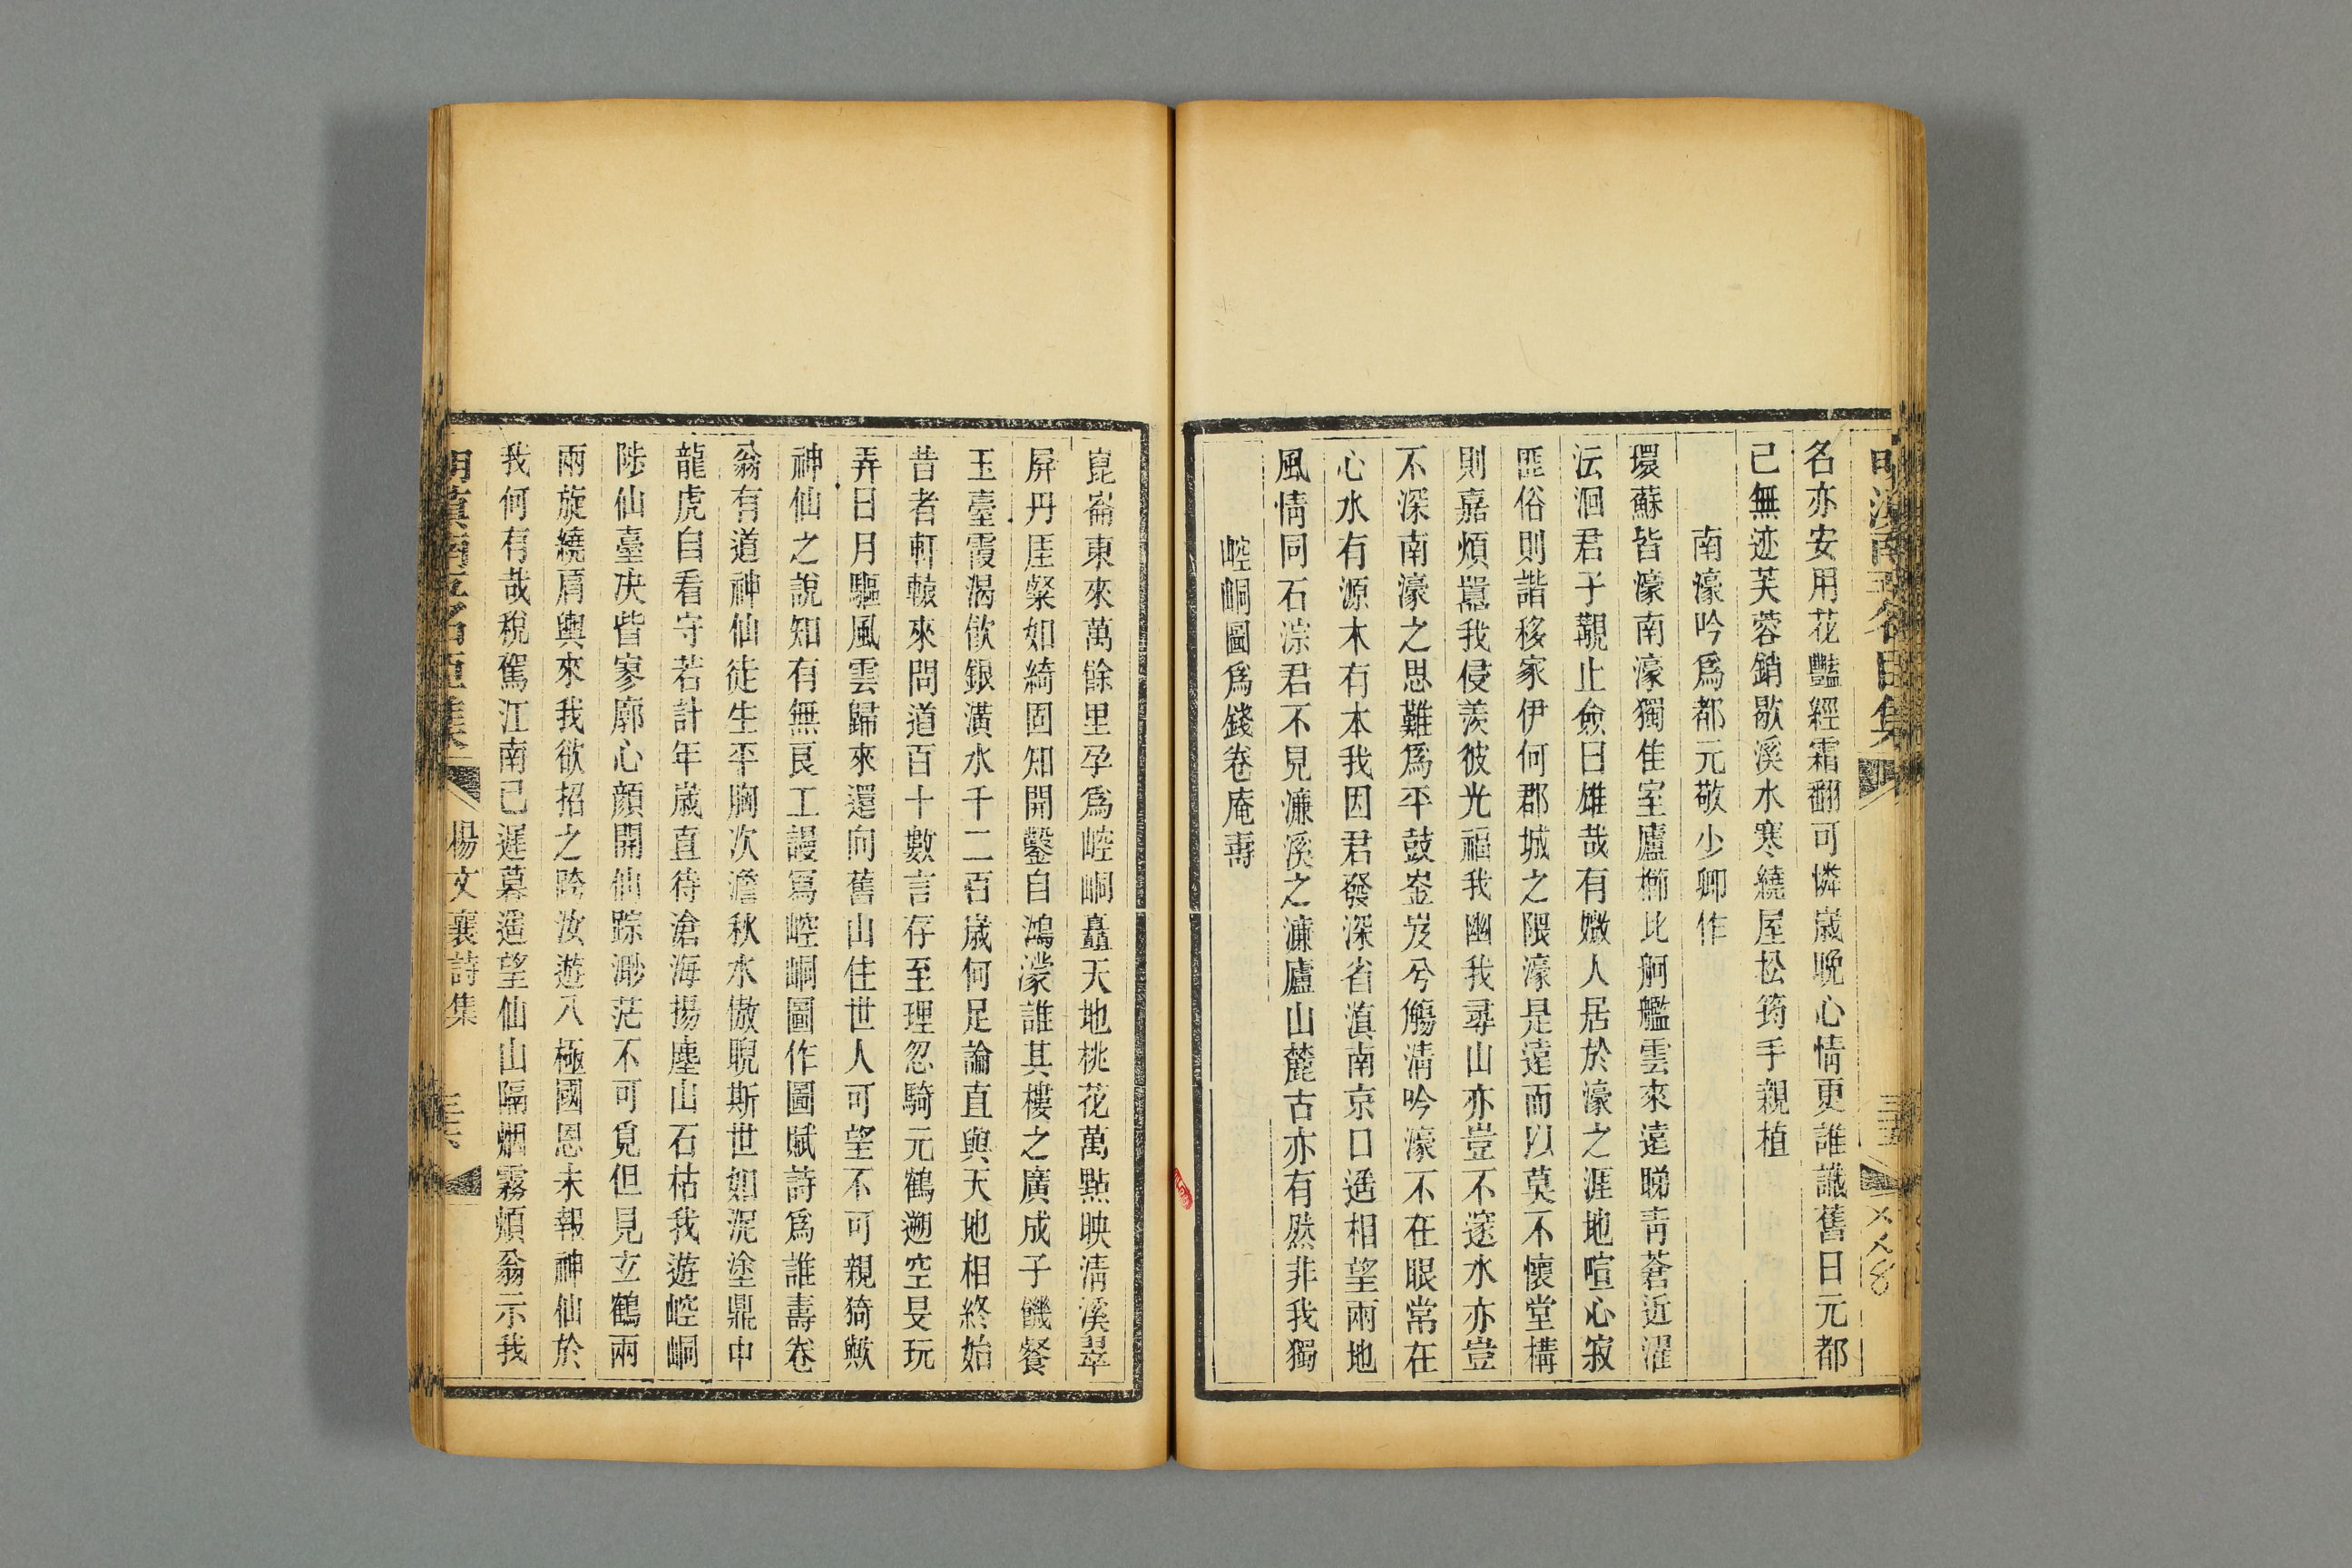 名亦安用花豔經霜翻可憐歲晚心情更誰識舊日元都
己無迹芙蓉銷歇溪水寒繞屋松筠手親植
南濠吟爲都元敬少卿作
環蘇皆濠南濠獨佳室廬櫛比舸艦雲來遠睇靑蒼近濯
沄洄君子覯止僉曰雄哉有媺人居於濠之涯地喧心寂
匪俗則諧移家伊何郡城之隈濠是遠而以莫不懷堂構
則嘉煩囂我侵羨彼光福我幽我尋山亦豈不邃水亦豈
不深南濠之思難爲平鼓崟岌兮觴淸吟濠不在眼常在
心水有源木有本我因君發深省滇南京口遙相望兩地
風情同石淙君不見濂溪之濂廬山麓古亦有然非我獨
崆峒圖爲錢卷庵壽
崑崙東來萬餘里孕爲崆峒矗天地桃花萬點映淸溪翠
屏丹厓粲如綺固知開鑿自鴻濛誰其樓之廣成子饑餐
玉臺霞渴飲銀潢水千二百歲何足論直與天地相終始
昔者軒轅來問道百十數言存至理忽騎元鶴遡空旻玩
弄日月驅風雲歸來還向舊山住世人可望不可親猗歟
神仙之說知有無良工謾寫崆峒圖作圖賦詩爲誰壽卷
翁有道神仙徒生平胸次澹秋水傲睨斯世如泥塗鼎中
龍虎自看守若計年歲直待滄海揚塵山石枯我遊崆峒
陟仙臺決眥寥廓心顏開仙踪渺茫不可覓但見立鶴兩
兩旋繞肩輿來我欲招之跨汝遊八極國恩未報神仙於
我何有哉稅駕江南己遲暮遙望仙山隔烟霧頫翁示我
明滇南五名臣集
楊文襄詩集
三六